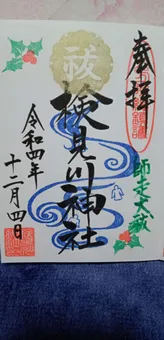 奉拝
師走大祓
祓
検見川神社
令和四年
十二月四日